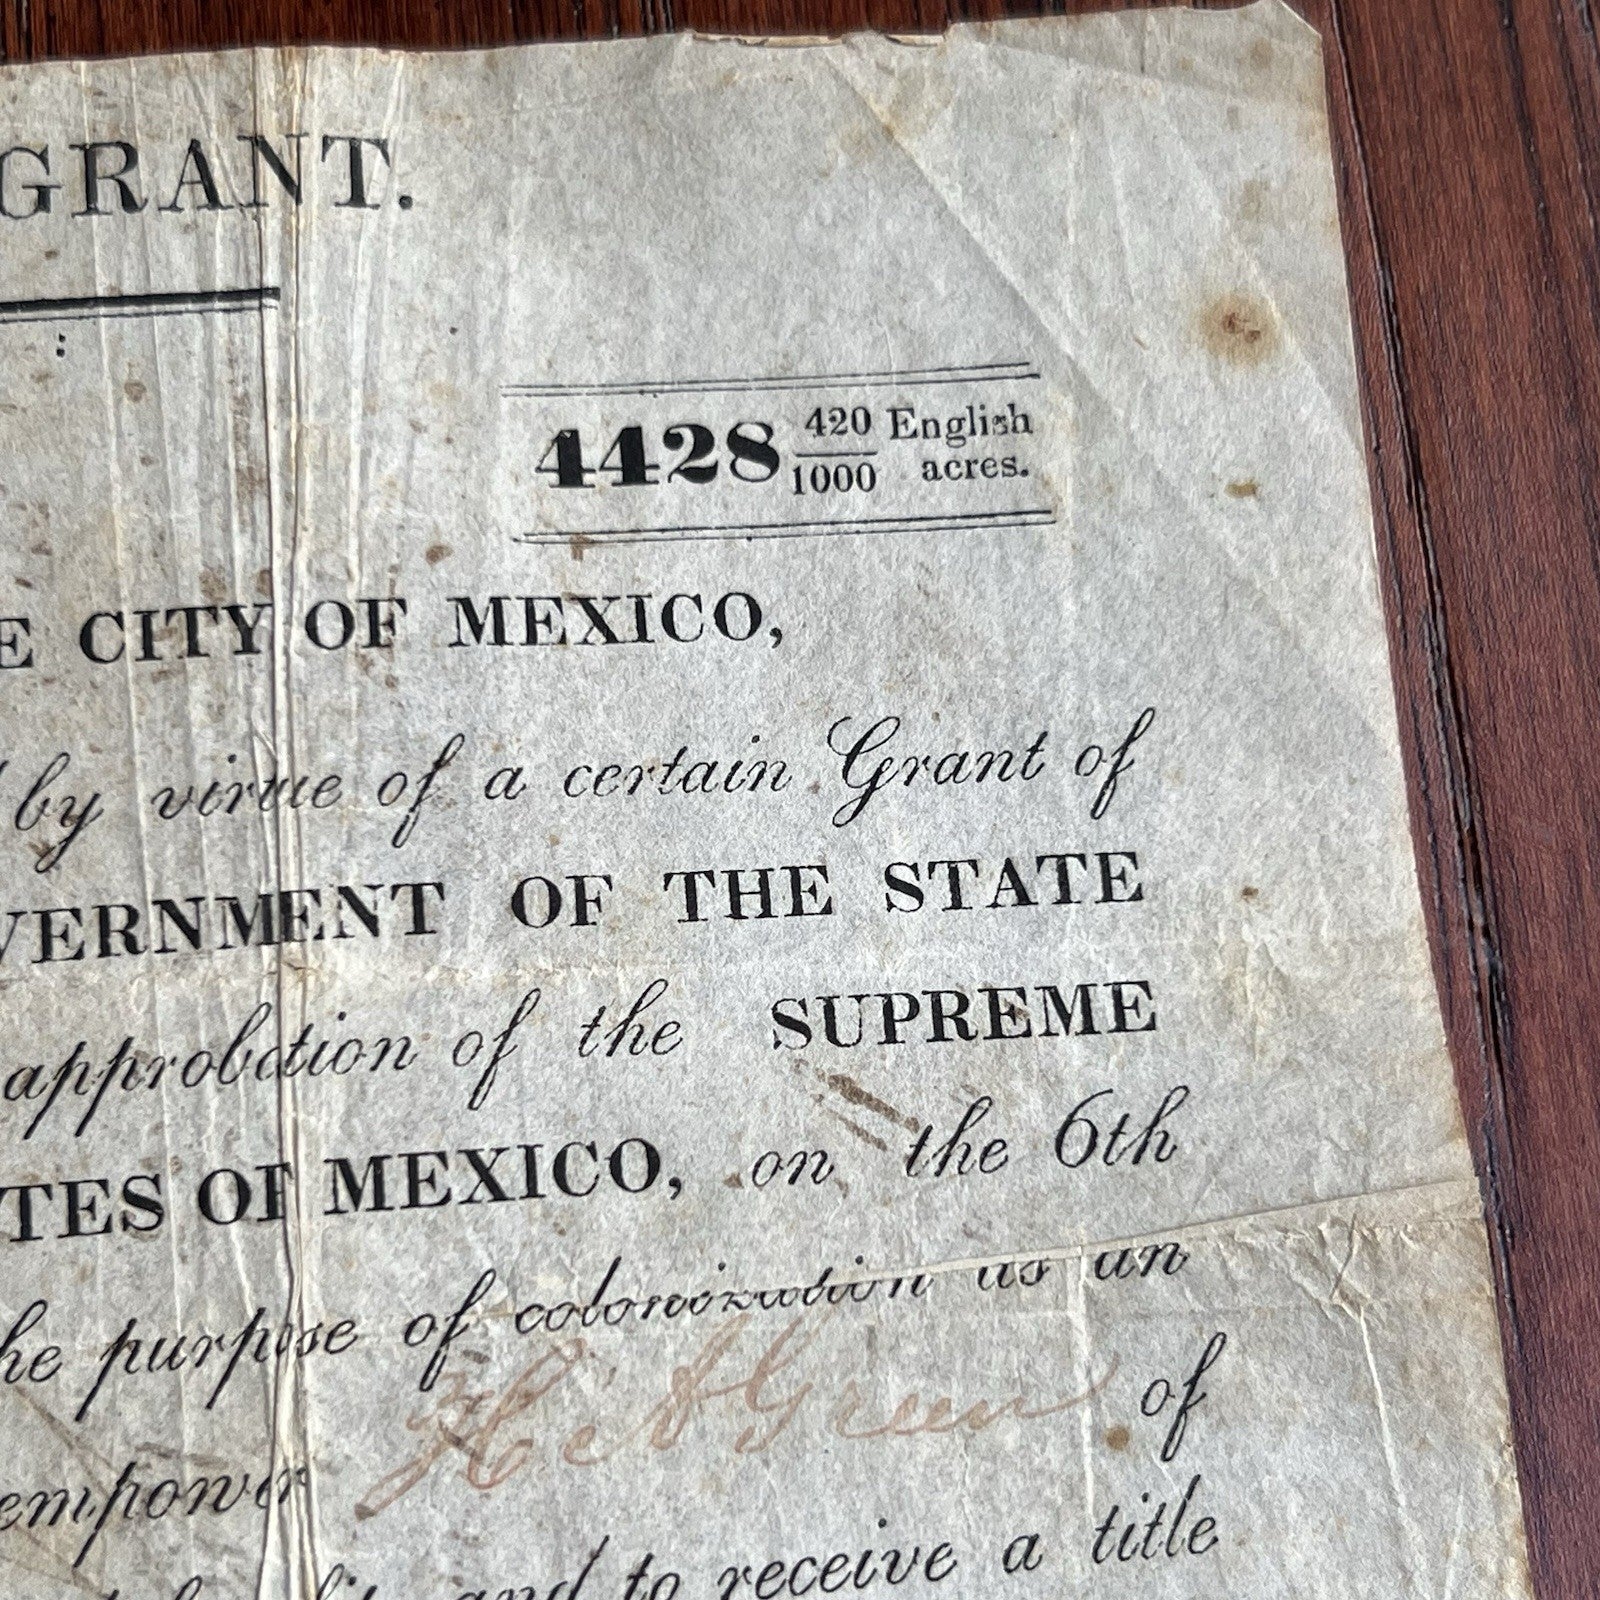 GRANT.
:
4428 420/1000 English acres.
E CITY OF MEXICO,
by virtue of a certain Grant of
VERNMENT OF THE STATE
approbation of the SUPREME
TES OF MEXICO, on the 6th
he purpose of colonization as an
empower Green of
and to receive a title